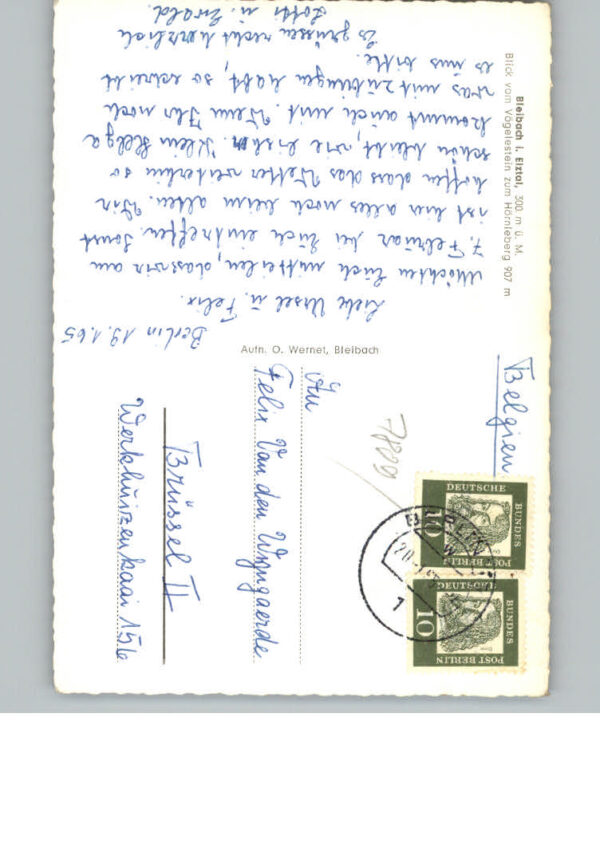 Bleibach i. Elztal, 300 m ü. M.
Blick vom Vögelestein zum Hörnleberg 907 m
Berlin 19.1.65
Liebe Ursel u. Felix.
Möchten Euch mitteilen, dass wir am
7. Februar bei Euch eintreffen. Sonst
ist hier alles noch beim alten. Wir
hoffen dass das Wetter weiterhin so
schön bleibt, wie bisher. Klein Helga
kommt auch mit. Wenn Ihr noch
was mitzubringen habt, so schreibt
es uns bitte.
Es grüssen recht herzlich
Lotti u. Ewald.
Aufn. O. Wernet, Bleibach
An
Felix Van den Wyngaerde
Brüssel II
Werkhuizenkaai 156
Belgien
DEUTSCHE
BUNDES
POST BERLIN
10
DEUTSCHE
BUNDES
POST BERLIN
10
BERLIN
1